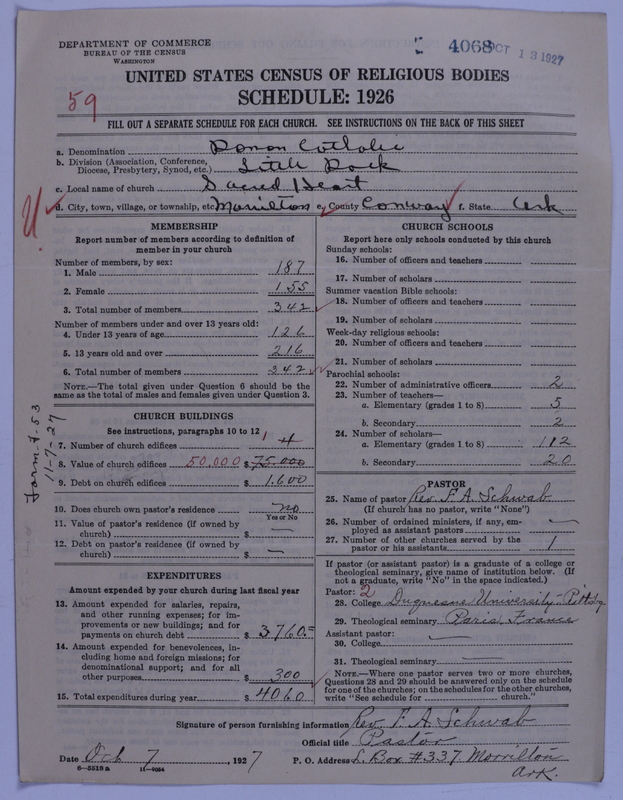 DEPARTMENT OF COMMERCE
BUREAU OF THE CENSUS
WASHINGTON
4068 OCT 13 1927
UNITED STATES CENSUS OF RELIGIOUS BODIES
59
SCHEDULE: 1926
FILL OUT A SEPARATE SCHEDULE FOR EACH CHURCH. SEE INSTRUCTIONS ON THE BACK OF THIS SHEET
a. Denomination Roman Catholic
b. Division (Association, Conference, Diocese, Presbytery, Synod, etc.) Little Rock
c. Local name of church Sacred Heart
U. d. City, town, village, or township, etc. Morrilton e. County Conway f. State Ark
MEMBERSHIP
Report number of members according to definition of
member in your church
Number of members, by sex:
1. Male 187
2. Female 155
3. Total number of members 342
Number of members under and over 13 years old:
4. Under 13 years of age 126
5. 13 years old and over 216
6. Total number of members 342
NOTE.—The total given under Question 6 should be the
same as the total of males and females given under Question 3.
CHURCH BUILDINGS
See instructions, paragraphs 10 to 12
7. Number of church edifices 1 4
8. Value of church edifices 50,000 $ 75.000
9. Debt on church edifices $ 1.600
10. Does church own pastor's residence no
Yes or No
11. Value of pastor's residence (if owned by
church) $ —
12. Debt on pastor's residence (if owned by
church) $ —
Form F-53
11-7-27
EXPENDITURES
Amount expended by your church during last fiscal year
13. Amount expended for salaries, repairs,
and other running expenses; for im-
provements or new buildings; and for
payments on church debt $ 3760.=
14. Amount expended for benevolences, in-
cluding home and foreign missions; for
denominational support; and for all
other purposes $ 300
15. Total expenditures during year $ 4060
CHURCH SCHOOLS
Report here only schools conducted by this church
Sunday schools:
16. Number of officers and teachers
17. Number of scholars
Summer vacation Bible schools:
18. Number of officers and teachers
19. Number of scholars
Week-day religious schools:
20. Number of officers and teachers
21. Number of scholars
Parochial schools:
22. Number of administrative officers 2
23. Number of teachers—
a. Elementary (grades 1 to 8) 5
b. Secondary 2
24. Number of scholars—
a. Elementary (grades 1 to 8) 112
b. Secondary 20
PASTOR
25. Name of pastor Rev. F. A. Schwab
(If church has no pastor, write "None")
26. Number of ordained ministers, if any, em-
ployed as assistant pastors —
27. Number of other churches served by the
pastor or his assistants 1
If pastor (or assistant pastor) is a graduate of a college or
theological seminary, give name of institution below. (If
not a graduate, write "No" in the space indicated.)
Pastor: 2
28. College Duquesne University-Pittsbg
29. Theological seminary Paris, France
Assistant pastor:
30. College —
31. Theological seminary —
NOTE.—Where one pastor serves two or more churches,
Questions 28 and 29 should be answered only on the schedule
for one of the churches; on the schedules for the other churches,
write "See schedule for church."
Signature of person furnishing information Rev. F. A. Schwab
Official title Pastor
Date Oct 7, 1927 P. O. Address L. Box #337 Morrilton
Ark.
8-5518a 11-9054